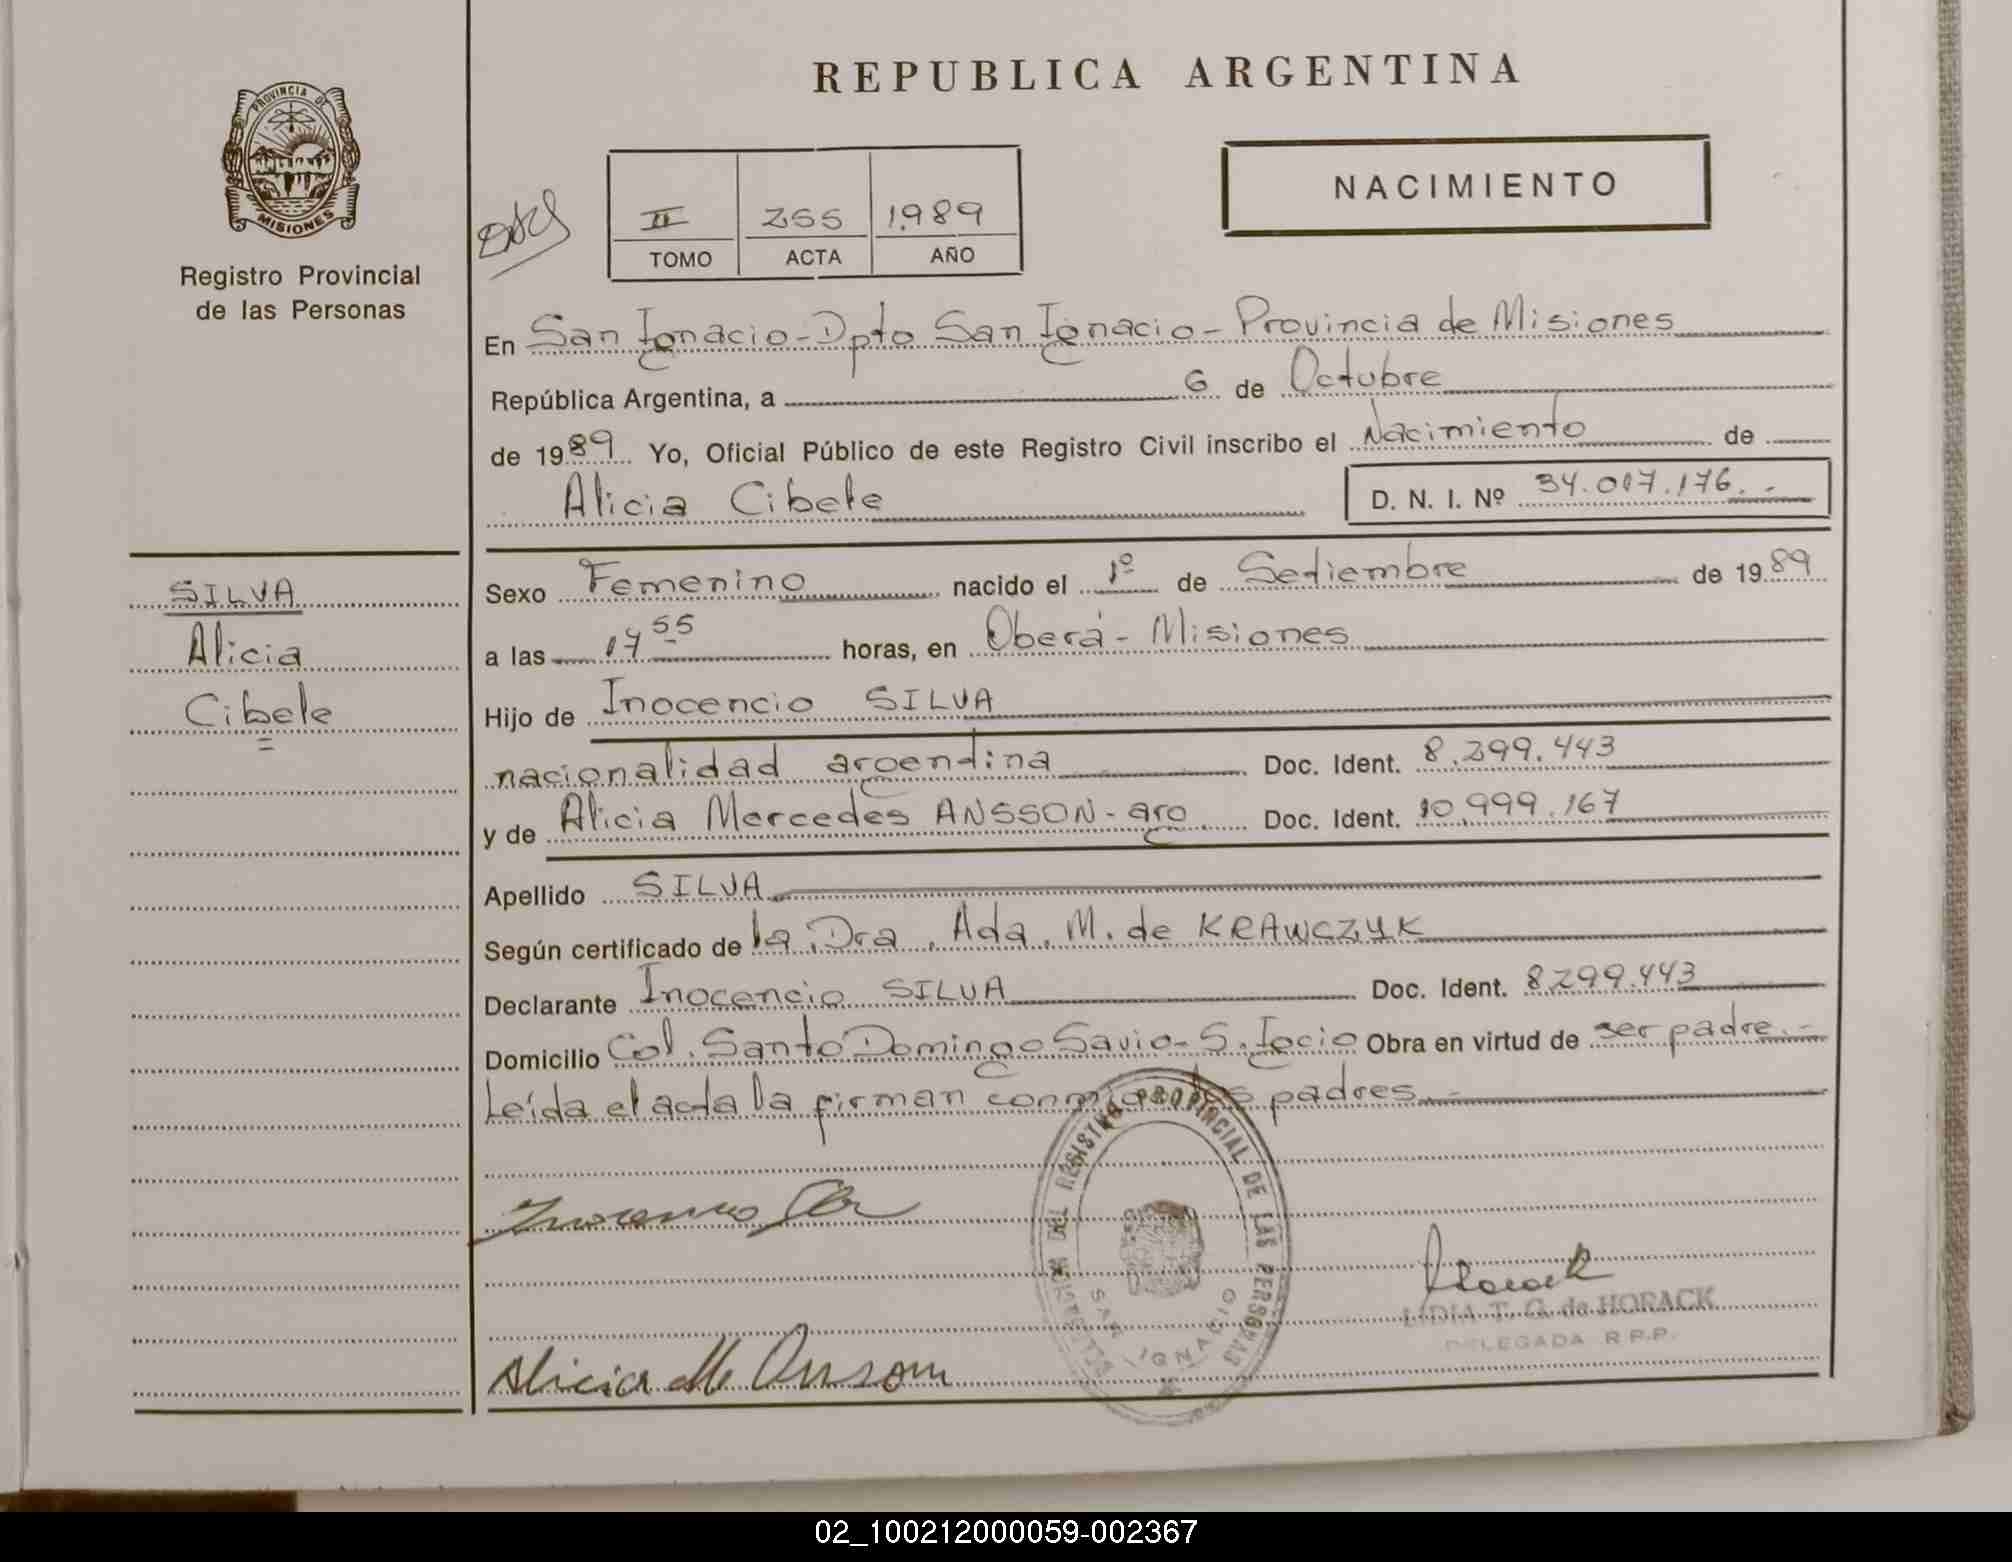 REPUBLICA ARGENTINA
PROVINCIA DE
MISIONES
Registro Provincial
de las Personas
NACIMIENTO
II 255 1.989
TOMO ACTA AÑO
En San Ignacio - Dpto San Ignacio - Provincia de Misiones
República Argentina, a 6 de Octubre
de 1989 Yo, Oficial Público de este Registro Civil inscribo el Nacimiento de
Alicia Cibele D. N. I. Nº 34.017.176.-
SILVA
Alicia
Cibele
Sexo Femenino nacido el 1º de Setiembre de 1989
a las 14 55 horas, en Oberá - Misiones
Hijo de Inocencio SILVA
nacionalidad argentina Doc. Ident. 8.299.443
y de Alicia Mercedes ANSSON - arg. Doc. Ident. 10.999.167
Apellido SILVA
Según certificado de la Dra. Ada. M. de KRAWCZYK
Declarante Inocencio SILVA Doc. Ident. 8.299.443
Domicilio Col. Santo Domingo Savio - S. Igcio Obra en virtud de ser padre.-
Leída el acta la firman conmigo los padres.-
DEL REGISTRO PROVINCIAL DE LAS PERSONAS
SAN IGNACIO
Horack
LIDIA T. G. de HORACK
DELEGADA R.P.P.
Alicia M Ansson
02_100212000059-002367